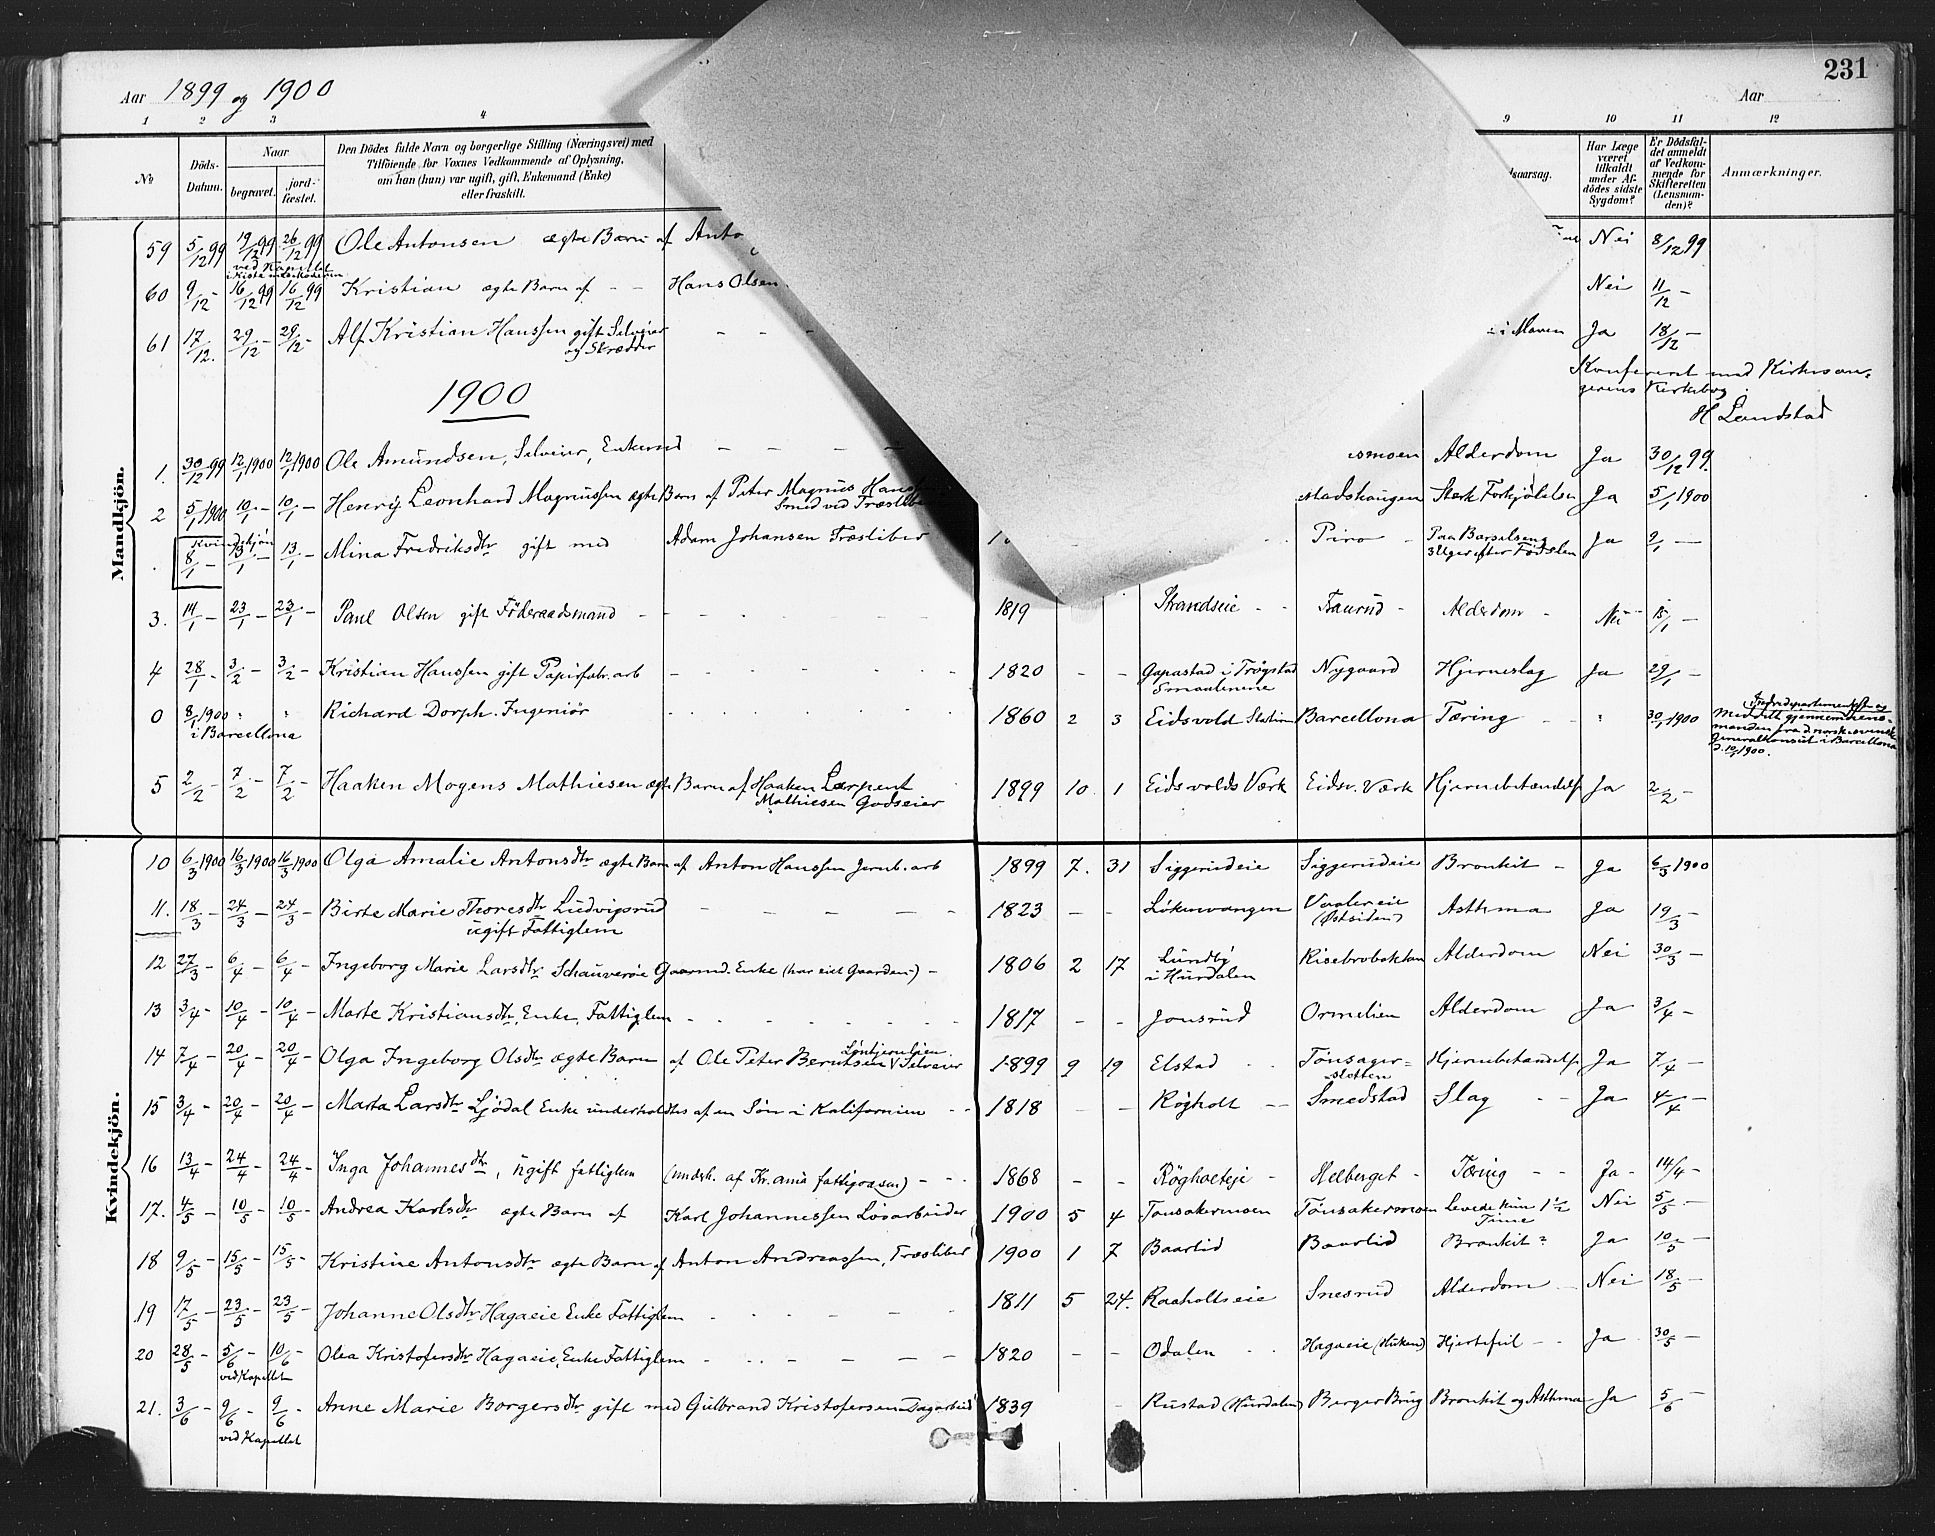 231
Aar 1899 og 1900
Aar
1 2 3 4 9 10 11 12
No
Döds-Datum.
Naar
begravet.
jord-fæstet.
Den Dödes fulde Navn og borgerlige Stilling (Næringsvei) med
Tilföiende for Voxnes Vedkommende af Oplysning,
om han (hun) var ugift, gift, Enkemand (Enke)
eller fraskilt.
dsaarsag.
Har Læge
været
tilkaldt
under Af-
dödes sidste
Sygdom?
Er Dödsfal-
det anmeldt
af Vedkom-
mende for
Skifteretten
(Lensman-
den)?
Anmærkninger.
Mandkjön.
59 5/12 99 19/12 99 26/12 99 Ole Antonsen ægte Barn af Anto Nei 8/12 99
ved Kapellet
60 9/12 - 16/12 99 16/12 99 Kristian ægte Barn af - - Hans Olsen Nei 11/12 -
61 17/12. 29/12 - 29/12 - Alf Kristian Hanssen gift Selveier - - - i Maven Ja 18/12 -
og Skrædder
Konfereret med Kirkesan-
gerens Kirkebog
H Landstad
1900
1. 30/12 99 12/1 1900 12/1 1900 Ole Amundsen, Selveier, Enkemd - - - - smoen Alderdom Ja 30/12 99.
2 5/1 1900 10/1 - 10/1 - Henrij Leonhard Magnussen ægte Barn af Peter Magnus Hans stadshaugen Stærk Forkjølelse Ja 5/1 1900
Smed ved Træslibe
Kvindekjön
8/1 - 13/1 - 13/1 - Mina Fredriksdtr gift med Adam Johansen Træsliber Piro - Paa Barselseng Ja 2/1 -
3 Uger efter Fødslen
3. 14/1 - 23/1 - 23/1 - Paul Olsen gift Föderaadsmand - - 1819 Strandseie - - Traurud - Alderdom - Nei 15/1 -
4 28/1 - 3/2 - 3/2 - Kristian Hanssen gift Papirfabr. arb - 1820 - - Gapastad i Trøgstad Nygaard Hjerneslag Ja 29/1 -
Smaalenene
0 8/1 1900 " " Richard Dorph. Ingeniör 1860 2 3 Eidsvold Station Barcellona Tæring - - " 30/1 1900
i Barcellona
Meddelt gjennem
manden fra d. norsk-svenske
Generalkonsul i Barcellona
d. 10/1 1900.
5 2/2 - 7/2 - 7/2 - Haaken Mogens Mathiesen ægte Barn af Haaken Larpent 1899 10 1 Eidsvolds Værk Eidsv. Værk Hjernebetændelse Ja 2/2 -
Mathiesen Godseier
Kvindekjön.
10 6/3 1900 16/3 1900 16/3 1900 Olga Amalie Antonsdtr ægte Barn af Anton Hanssen Jernb. arb 1899 7. 31 Siggerudeie Siggerudeie Bronkit - Ja 6/3 1900
11. 18/3 - 24/3 - 24/3 - Birte Marie Thoresdtr Ludvigsrud - - - - - 1823 - - Løkenvangen Vaalereie Asthma Ja 19/3 -
ugift Fattiglem (Østsiden)
12 27/3 - 6/4 - 6/4 - Ingeborg Marie Larsdtr. Schauverøie Gaarmd. Enke (har eiet Gaarden) - 1806 2 17 Lundby Risebrobakken Alderdom Nei 30/3 -
i Hurdalen
13 3/4 - 10/4 - 10/4 - Marte Kristiansdtr, Enke, Fattiglem - - - 1817 - - Jonsrud Ormelien Alderdom Ja 3/4 -
14 7/4 - 20/4 - 20/4 - Olga Ingeborg Olsdtr ægte Barn af Ole Peter Berntsen Selveier 1899 9 19 Elstad - - Tønsager- Hjernebetændelse Ja 7/4 -
sletten
15 3/4 - 20/4 - 20/4 - Marta Larsdtr Ljödal Enke underholdtes af en Søn i Kalifornien - - 1818 - - Røgholt - - Smedstad Slag - - Ja 4/4 -
16 13/4 - 24/4 - 24/4 - Inga Johannesdtr, ugift fattiglem (underh. af Kr.ania fattigvæsen) - - 1868 - - Røgholteje - Helberget - Tæring - - Ja - 14/4 -
17. 4/5 - 10/5 - 10/5 - Andrea Karlsdtr ægte Barn af Karl Johannessen Løsarbeider 1900 5 4 Tønsakermoen Tønsakermoen Levede kun 1 1/2 Nei 5/5 -
Time
18 9/5 - 15/5 - 15/5 - Kristine Antonsdtr ægte Barn af Anton Andreassen, Træsliber 1900 1 7 Baarlid Baarlid Bronkit? Ja 10/5 -
19 17/5 - 23/5 - 23/5 - Johanne Olsdtr Hagaeie Enke Fattiglem - - - 1811 5 24. Raaholtseie Snesrud Alderdom - Nei 18/5 -
20 28/5 - 5/6 - 10/6 - Olea Kristofersdtr Hagaeie, Enke Fattiglem - - - - - 1820 - - Odalen - - Hagaeie (Huken) Hjertefeil - - Ja 30/5 -
ved Kapellet
21. 3/6 - 9/6 - 9/6 - Anne Marie Borgersdtr gift med Gulbrand Kristofersen Dagarbeid 1839 - Rustad (Hurdalen) Berger Brug Bronkit og Asthma Ja 5/6 -
ved Kapellet